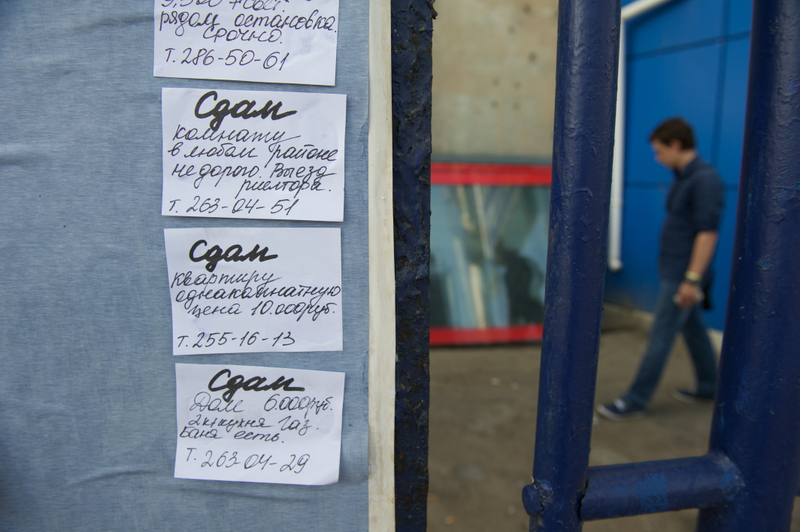 рядом остановка.
Срочно.
т. 286-50-61
Сдам
комнату
в любом районе
недорого. Выезд
риелтора.
т. 263-04-51
Сдам
квартиру
однакамнатную
цена 10.000руб.
т. 255-16-13
Сдам
Дом 6.000руб.
2к+кухня Газ.
Баня есть.
Т. 263-04-29